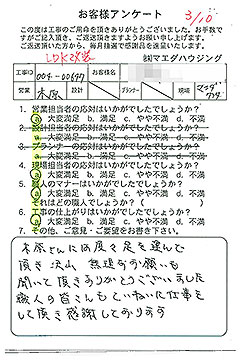 お客様アンケート
3/10
この度は工事のご用命を頂きありがとうございました。お手数で
すがご記入頂き、ご返送頂きますようお願い申し上げます。
ご返送頂いた方から、毎月抽選で感謝品を進呈いたします。
LDK改装
㈱マエダハウジング
工事ID 004-00699 お客様名
営業 木原 プランナー 現場
1. 営業担当者の応対はいかがでしたでしょうか?
a 大変満足 b. 満足 c. やや不満 d. 不満
2. 設計担当者の応対はいかがでしたでしょうか?
a. 大変満足 b. 満足 c. やや不満 d. 不満
3. プランナーの応対はいかがでしたでしょうか?
a. 大変満足 b. 満足 c. やや不満 d. 不満
4. 現場担当者の応対はいかがでしたでしょうか?
a 大変満足 b. 満足 c. やや不満 d. 不満
5. 職人のマナーはいかがでしたでしょうか?
a 大変満足 b. 満足 c. やや不満 d. 不満
それはどの職人でしょうか?( )
6. 工事の仕上がりはいかがでしたでしょうか?
a 大変満足 b. 満足 c. やや不満 d. 不満
7. その他、ご意見・ご要望をお書き下さい。
木原さんには度々足を運んで
頂き沢山 無理なお願いも
聞いて頂きありがとうございました
職人の皆さんもていねいに仕事を
して頂き感謝しております